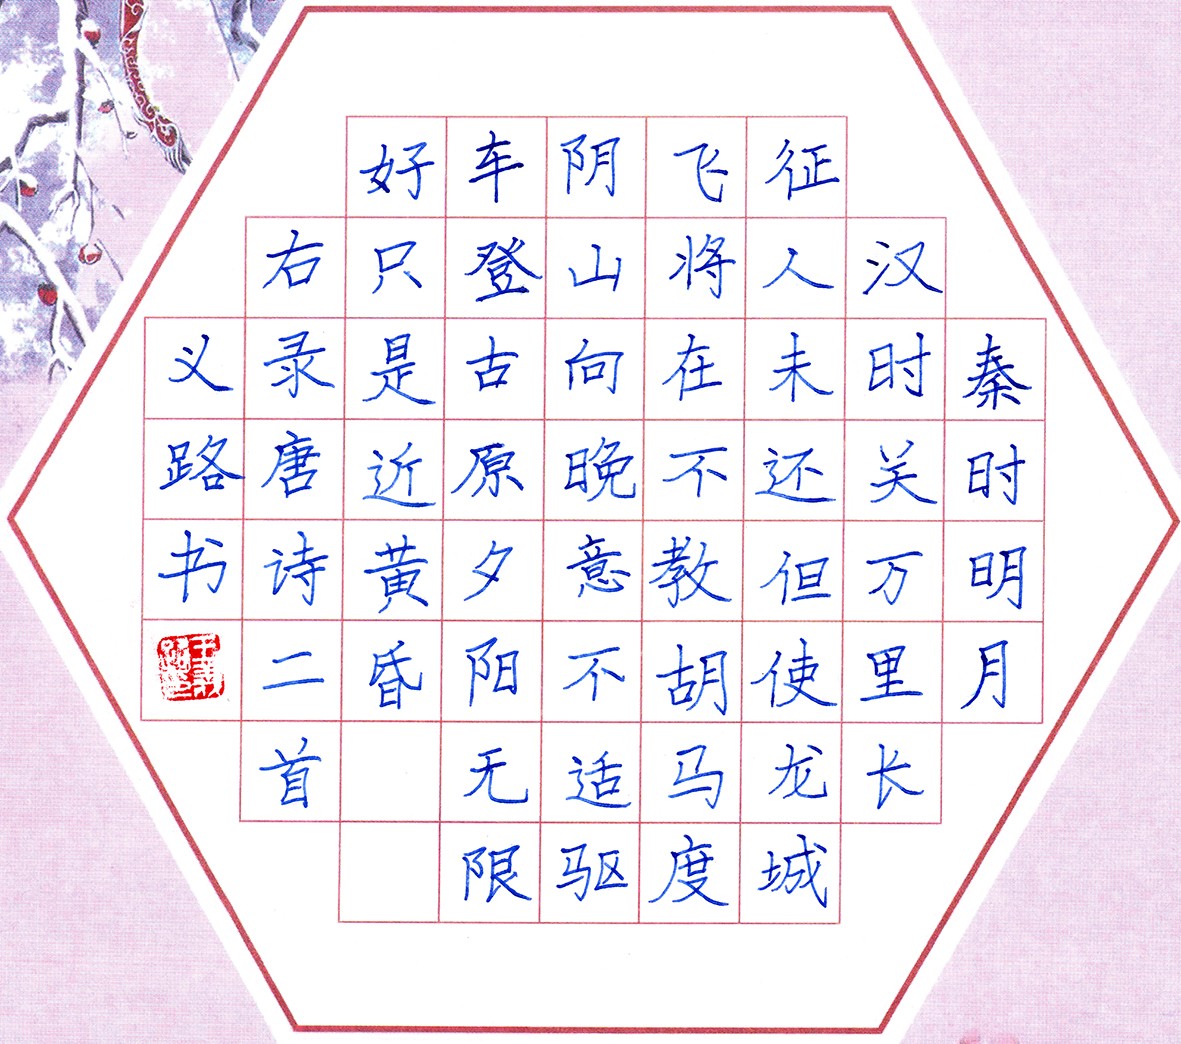 秦时明月
汉时关万里长
征人未还但使龙城
飞将在不教胡马度
阴山向晚意不适驱
车登古原夕阳无限
好只是近黄昏
右录唐诗二首
义路书